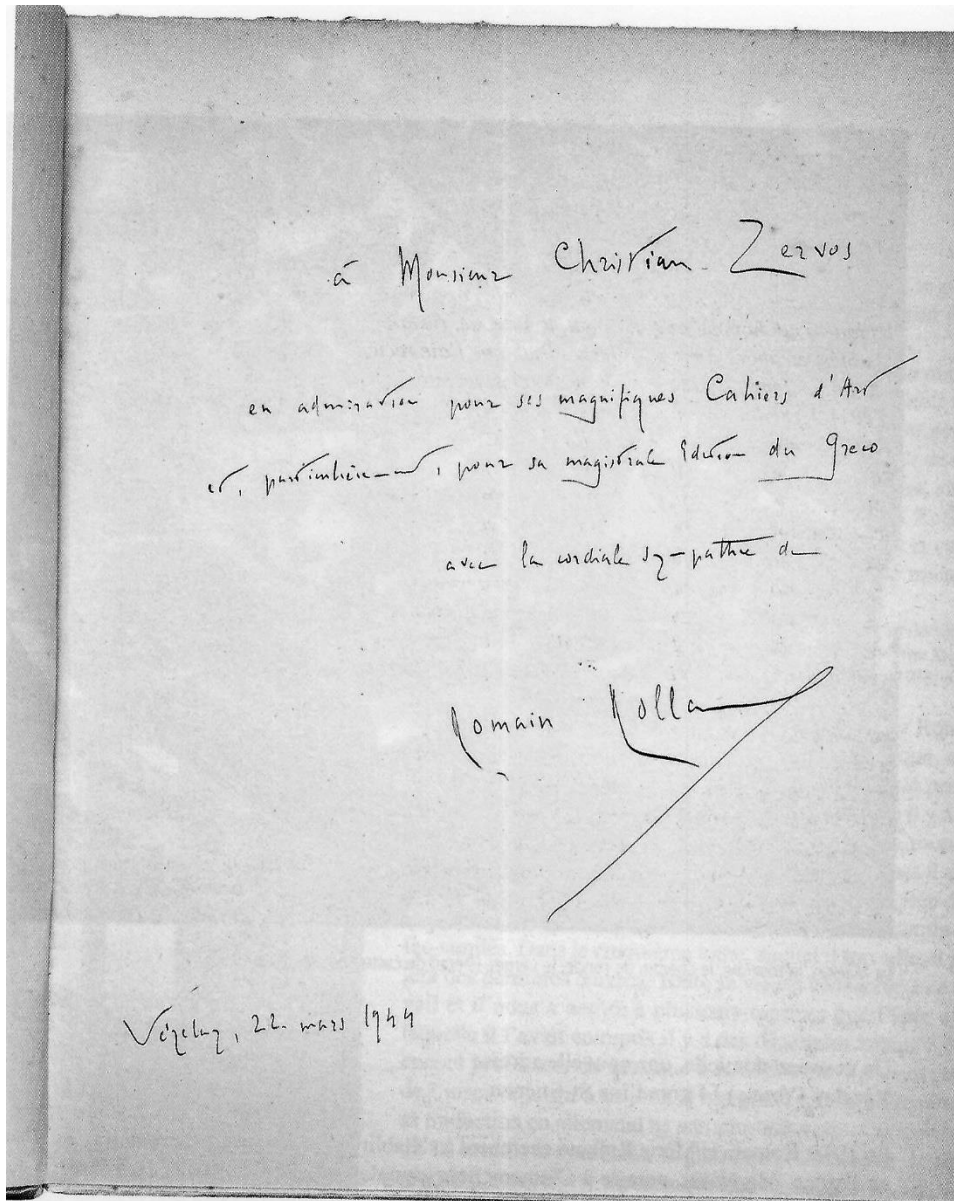 à Monsieur Christian Zervos
en admiration pour ses magnifiques Cahiers d'Art
et, particulièrement, pour sa magistrale Edition du Greco
avec la cordiale sympathie de
Romain Rolland
Vézelay, 22 mars 1944